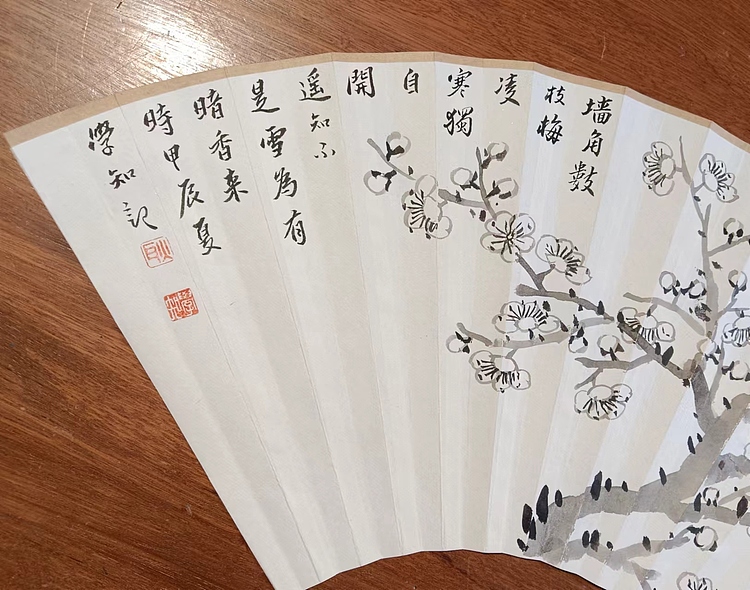 墙角數
枝梅
凌
寒獨
自
開
遥知不
是雪為有
暗香来
時甲辰夏
學知記
耿
學知